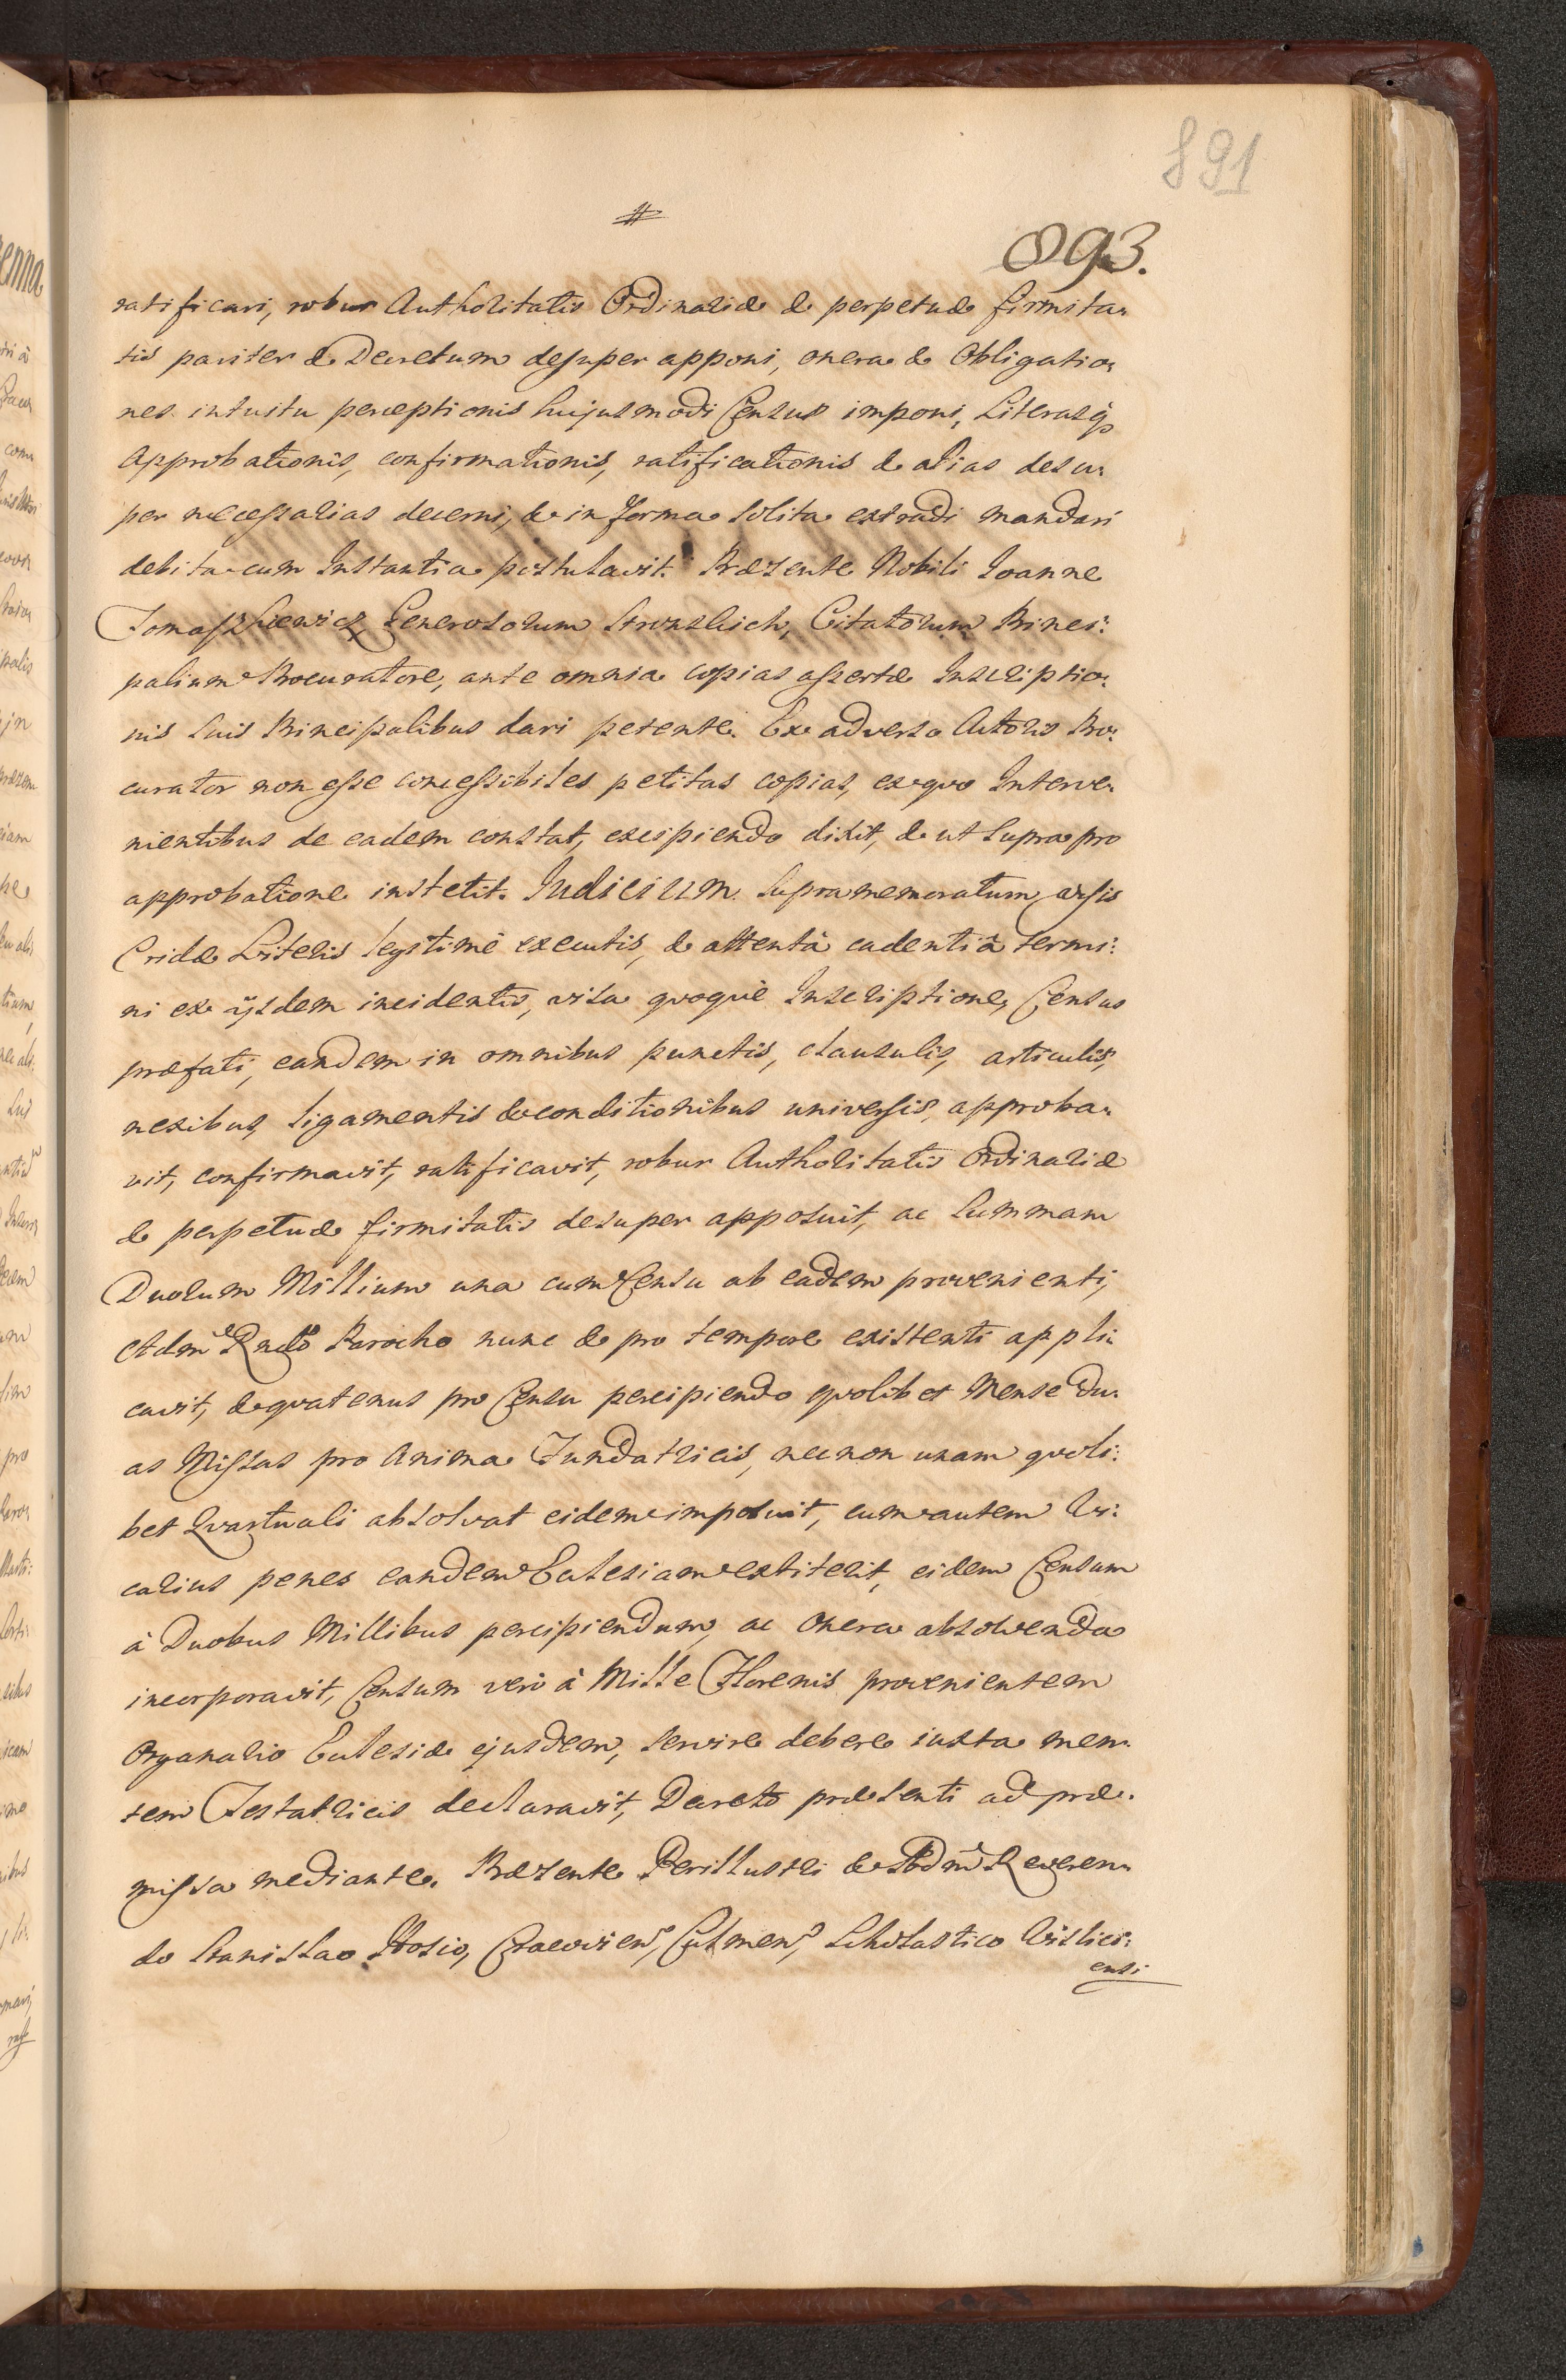 891
#
893.
ratificari, robur Authoritatis Ordinariæ & perpetuæ firmita-
tis pariter & Decretum desuper apponi, onera & Obligatio-
nes intuitu perceptionis hujusmodi Census imponi, Literasq3
Approbationis, confirmationis, ratificationis & alias desu-
per necessarias decerni, & in forma solita extradi mandari
debita cum Instantia postulavit. Præsente Nobili Joanne
Tomaszkiewicz Generosorum, Citatorum Princi:
palium Procuratore, ante omnia copias assertæ Inscriptio-
nis suis Principalibus dari petente. Ex adverso Actoris Pro:
curator non esse concessibiles petitas copias, ex quo Interve-
nientibus de eadem constat, excipiendo dixit, & ut supra pro
approbatione institit. Judicium supra memoratum, visis
Cridæ Literis legitimè executis, & attentâ cadentiâ termi:
ni ex ijsdem incidentis, visa quoquè Inscriptione, Census
præfati, eandem in omnibus punctis, clausulis, articulis,
nexibus, ligamentis & conditionibus universis, approba-
vit, confirmavit, ratificavit, robur Authoritatis Ordinariæ
& perpetuæ firmitatis desuper apposuit, ac Summam
Duorum Millium una cum Censu ab eadem provenienti,
Adm Rndo Parocho nunc & pro tempore existenti appli:
cavit, & quatenus pro Censu percipiendo quolibet Mense du-
as Missas pro Anima Fundatricis, nec non unam quoli:
bet Quartuali absolvat eidem imposuit, cum autem Vi:
carius penes eandem Ecclesiam extiterit, eidem Censum
à Duobus Millibus percipiendum, ac Onera absolvenda
incorporavit, Censum verò à Mille Florenis provenientem
Organario Ecclesiæ ejusdem, servire debere iuxta men-
tem Testatricis declaravit, Decreto præsenti ad præ-
missa mediante. Præsente Perillustri & Adm Reveren-
do Stanislao Hosio, Cracovien, Culmen, Scholastico Vislici:
ensi